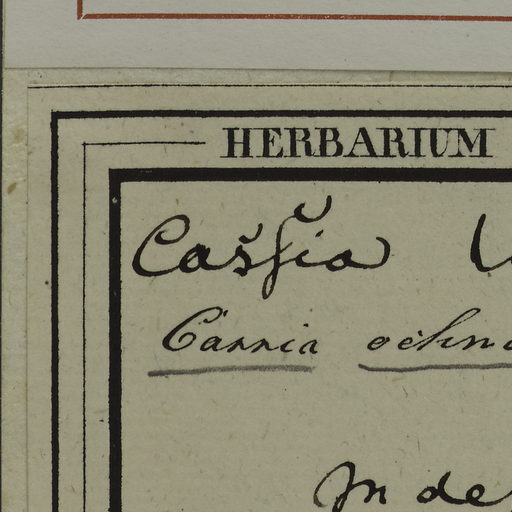 HERBARIUM
Cassia
Cassia ochn
In de